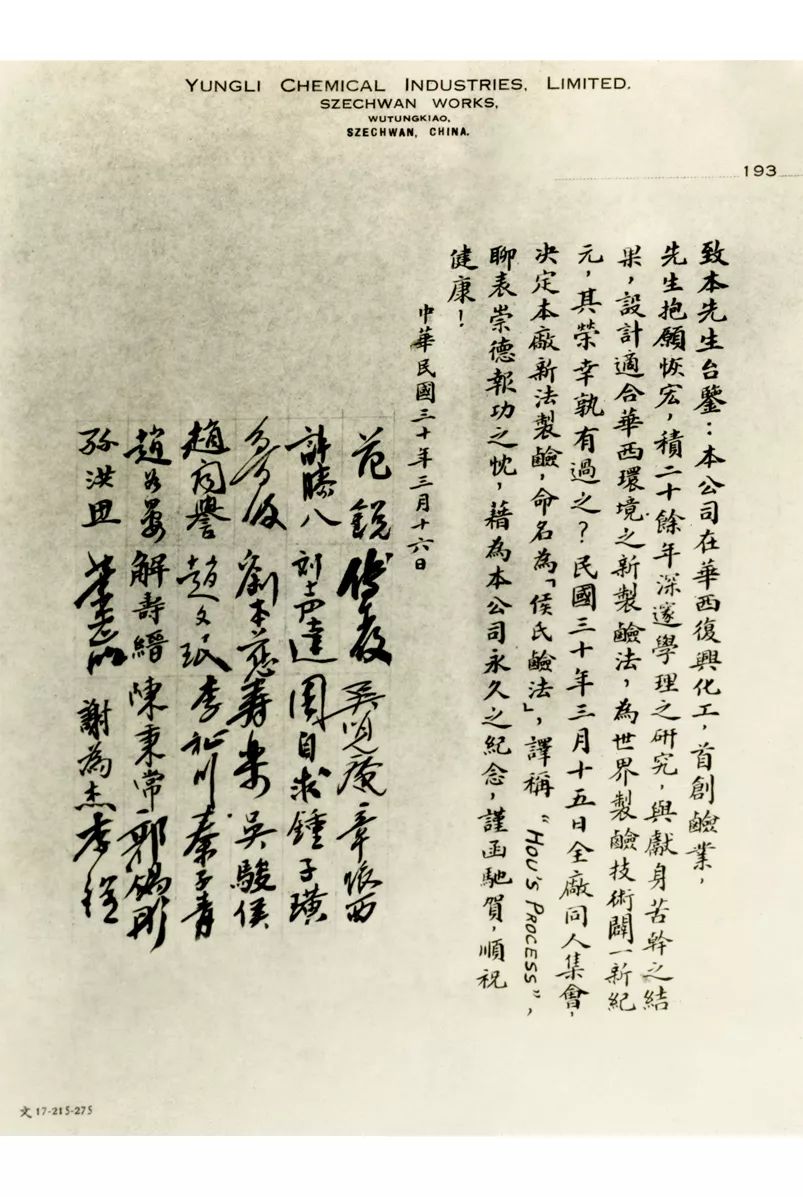 YUNGLI CHEMICAL INDUSTRIES, LIMITED.
SZECHWAN WORKS,
WUTUNGKIAO,
SZECHWAN, CHINA.
193
致本先生台鑒：本公司在華西復興化工，首創鹼業，
先生抱願恢宏，積二十餘年深邃學理之研究，與獻身苦幹之結
果，設計適合華西環境之新製鹼法，為世界製鹼技術闢一新紀
元，其榮幸孰有過之？民國三十年三月十五日全廠同人集會，
決定本廠新法製鹼，命名為「侯氏鹼法」，譯稱 “HOU'S PROCESS”，
聊表崇德報功之忱，藉為本公司永久之紀念，謹函馳賀，順祝
健康！
中華民國三十年三月十六日
范銳 章懷西
許騰八 刘声達 周自求 鍾子璜
劉本慈 壽樂 吳駿侯
趙同譽 趙文珉 李祉川 秦子青
解壽縉 陳東常 郭錫彤
孫洪 謝為杰 李
文 17-215-275